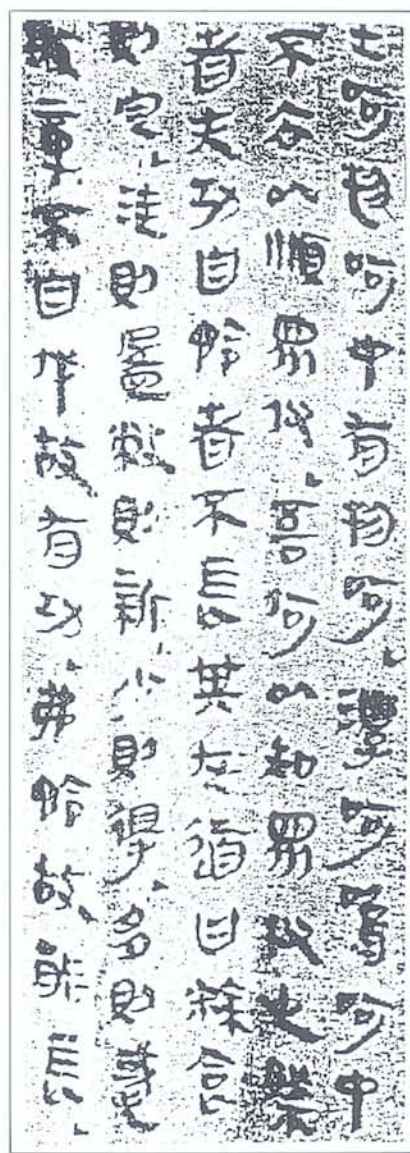 望呵忽呵中有物呵㴨呵鳴呵中
不去以順眾仪吾何以知眾仪之然
者无功自矜者不長其在道曰粽食
則定洼則盈敝則新少則得多則惑
故章不自伐故有功弗矜故能長